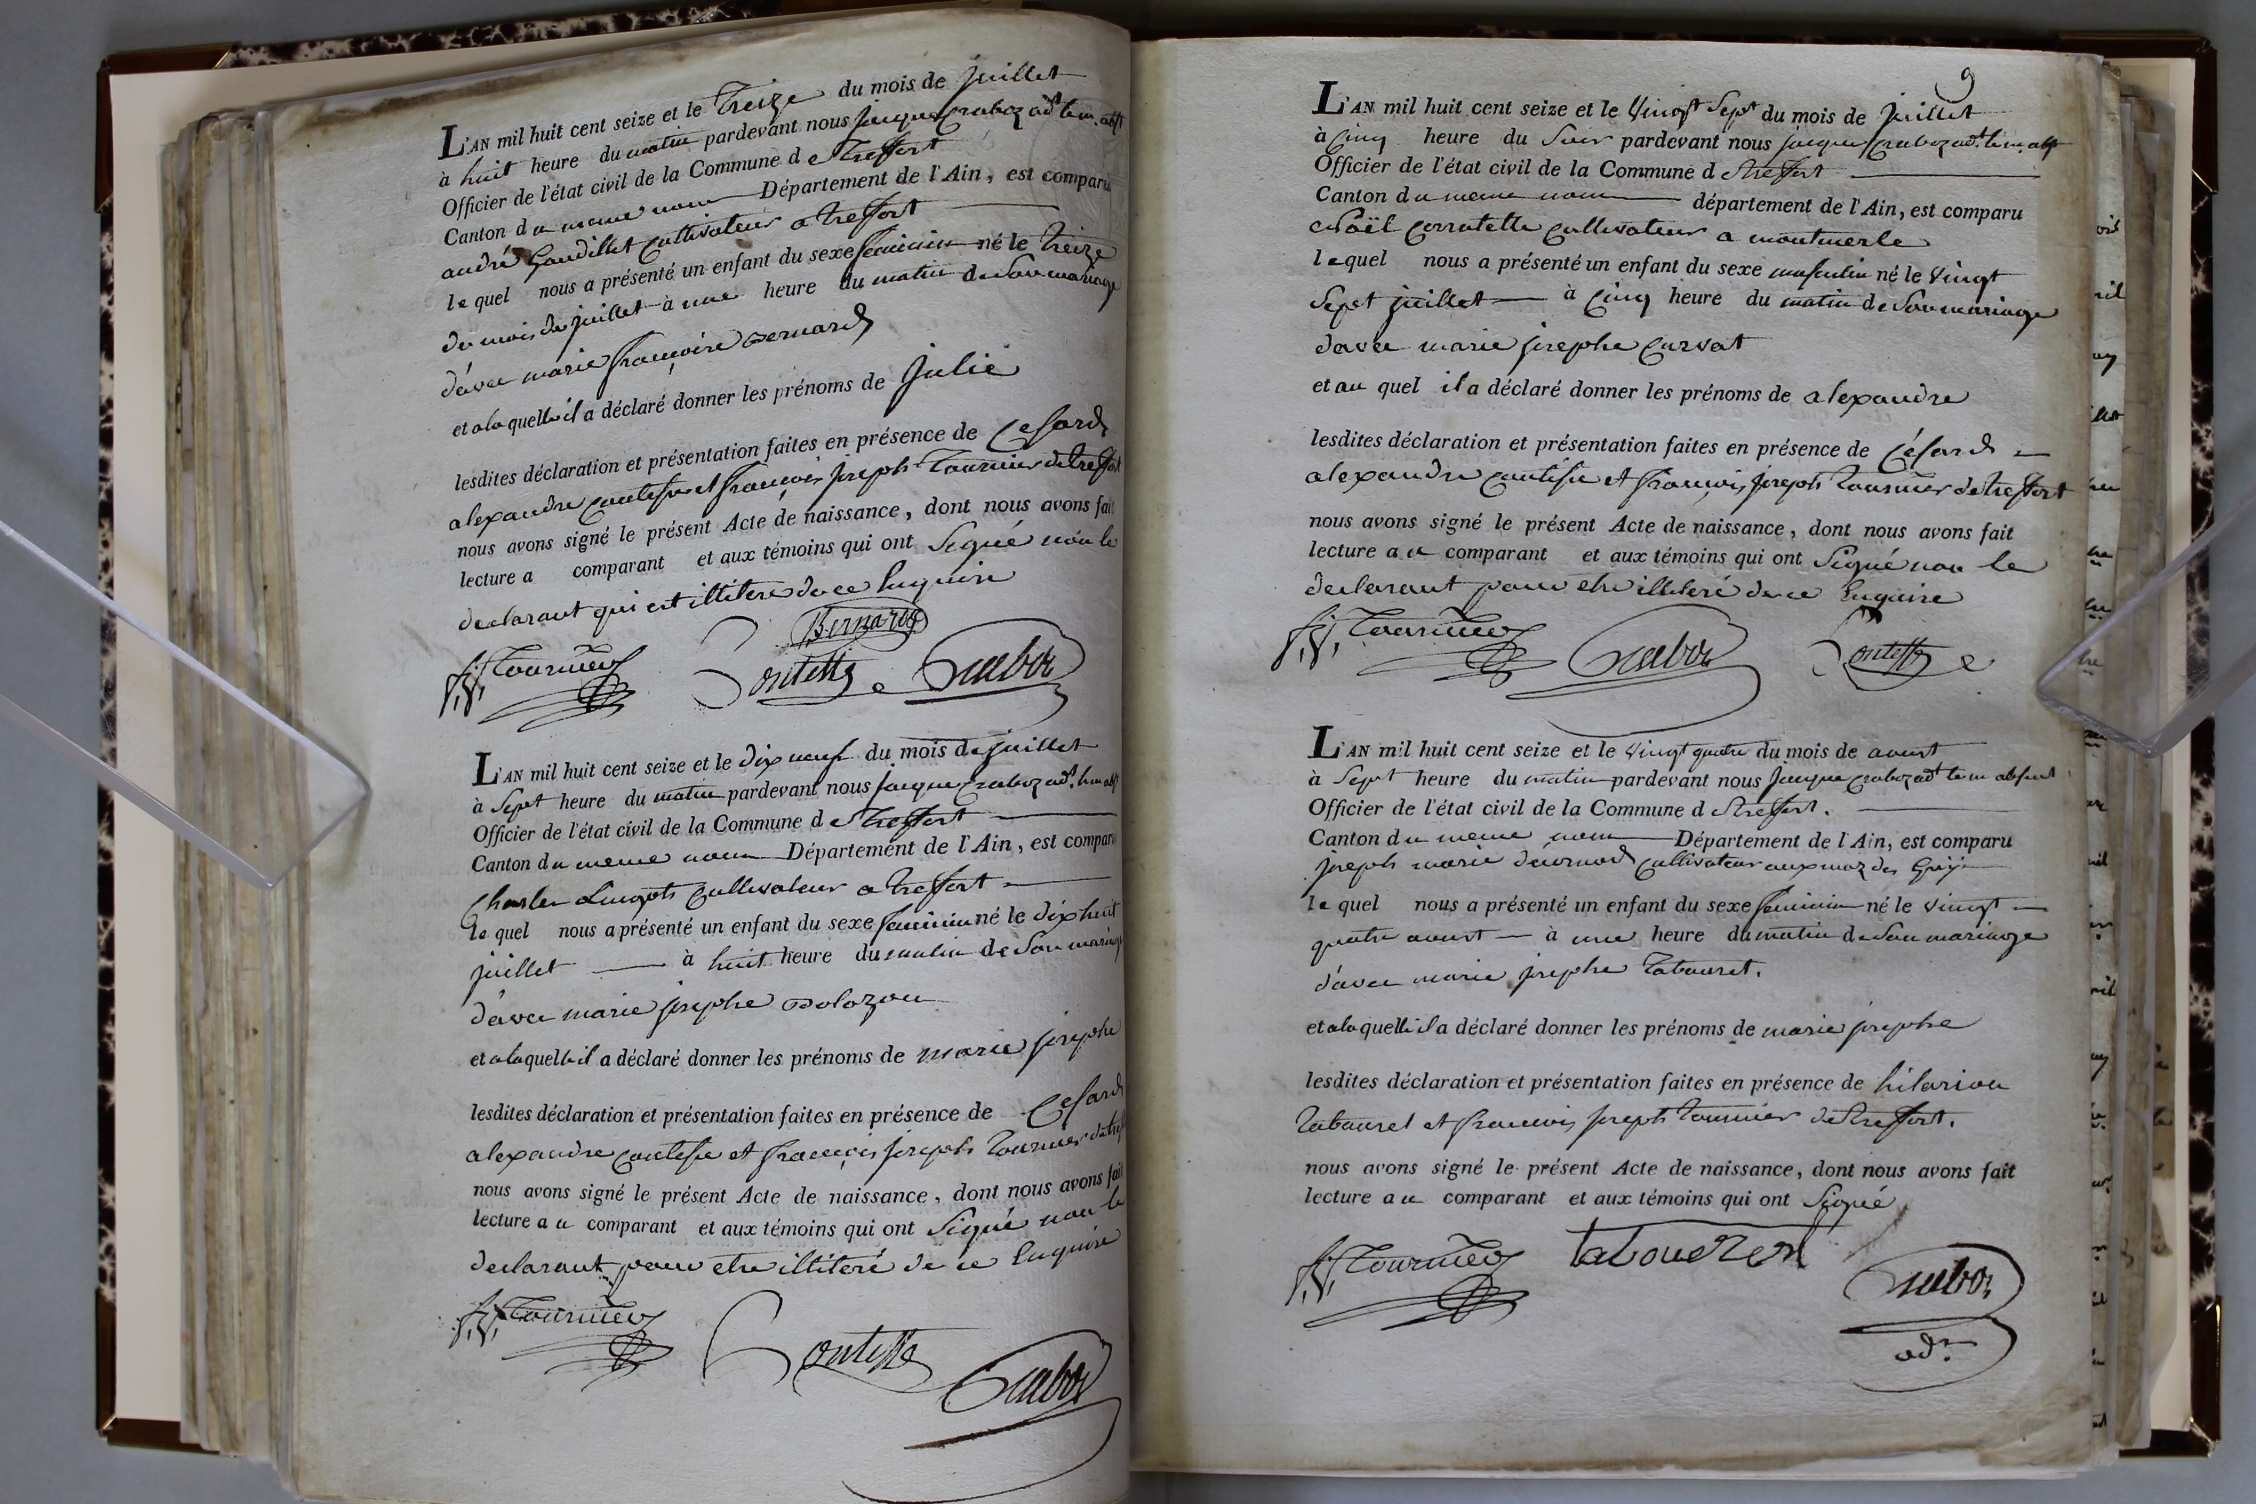 L'AN mil huit cent seize et le treize du mois de juillet
à huit heure du matin pardevant nous jacque Craboz adt. le m. abst
Officier de l'état civil de la Commune d etreffort
Canton du meme nom Département de l'Ain, est comparu
andré Gaudillet Cultivateur a treffort
le quel nous a présenté un enfant du sexe feminin né le treize
du mois de juillet à une heure du matin de son mariage
d'avec marie françoise Bernard
et a la quelle il a déclaré donner les prénoms de julie
lesdites déclaration et présentation faites en présence de Cesard
alexandre contesse et françois joseph tournier de treffort
nous avons signé le présent Acte de naissance, dont nous avons fait
lecture a comparant et aux témoins qui ont signé non le
declarant qui est illiteré de ce Enquire
Bernard
f. j. Tournier Contesse Craboz
L'AN mil huit cent seize et le dix neuf du mois de juillet
à sept heure du matin pardevant nous jacque Craboz adt. le m abst
Officier de l'état civil de la Commune d etreffort
Canton du meme nom Département de l'Ain, est comparu
Charles Cultivateur a treffort
le quel nous a présenté un enfant du sexe feminin né le dix huit
juillet à huit heure du matin de son mariage
d'avec marie josephe
et a la quelle il a déclaré donner les prénoms de marie josephe
lesdites déclaration et présentation faites en présence de Cesard
alexandre contesse et françois joseph tournier de treff
nous avons signé le présent Acte de naissance, dont nous avons fait
lecture a u comparant et aux témoins qui ont signé non le
declarant pour etre illiteré de ce Enquire
f. j. Tournier Contesse Craboz
9
L'AN mil huit cent seize et le vingt sept du mois de juillet
à cinq heure du soir pardevant nous jacque Craboz adt. le m abst
Officier de l'état civil de la Commune d etreffort
Canton du meme nom département de l'Ain, est comparu
Noël Corratette cultivateur a montmerle
le quel nous a présenté un enfant du sexe masculin né le vingt
sept juillet à cinq heure du matin de son mariage
d'avec marie josephe Curvat
et au quel il a déclaré donner les prénoms de alexandre
lesdites déclaration et présentation faites en présence de Césard
alexandre contesse et françois joseph tournier de treffort
nous avons signé le présent Acte de naissance, dont nous avons fait
lecture a u comparant et aux témoins qui ont signé non le
declarant pour etre illiteré de ce Enquire
f. j. Tournier Craboz Contesse
L'AN mil huit cent seize et le vingt quatre du mois de aoust
à sept heure du matin pardevant nous jacque Craboz adt. le m absent
Officier de l'état civil de la Commune d etreffort.
Canton du meme nom Département de l'Ain, est comparu
joseph marie cultivateur aux maz des
le quel nous a présenté un enfant du sexe feminin né le vingt
quatre aoust à une heure du matin de son mariage
d'avec marie josephe Tabouret.
et a la quelle il a déclaré donner les prénoms de marie josephe
lesdites déclaration et présentation faites en présence de hilarion
Tabouret et francois joseph tournier de treffort.
nous avons signé le présent Acte de naissance, dont nous avons fait
lecture a u comparant et aux témoins qui ont signé
f. j. Tournier tabouret Craboz
adt.